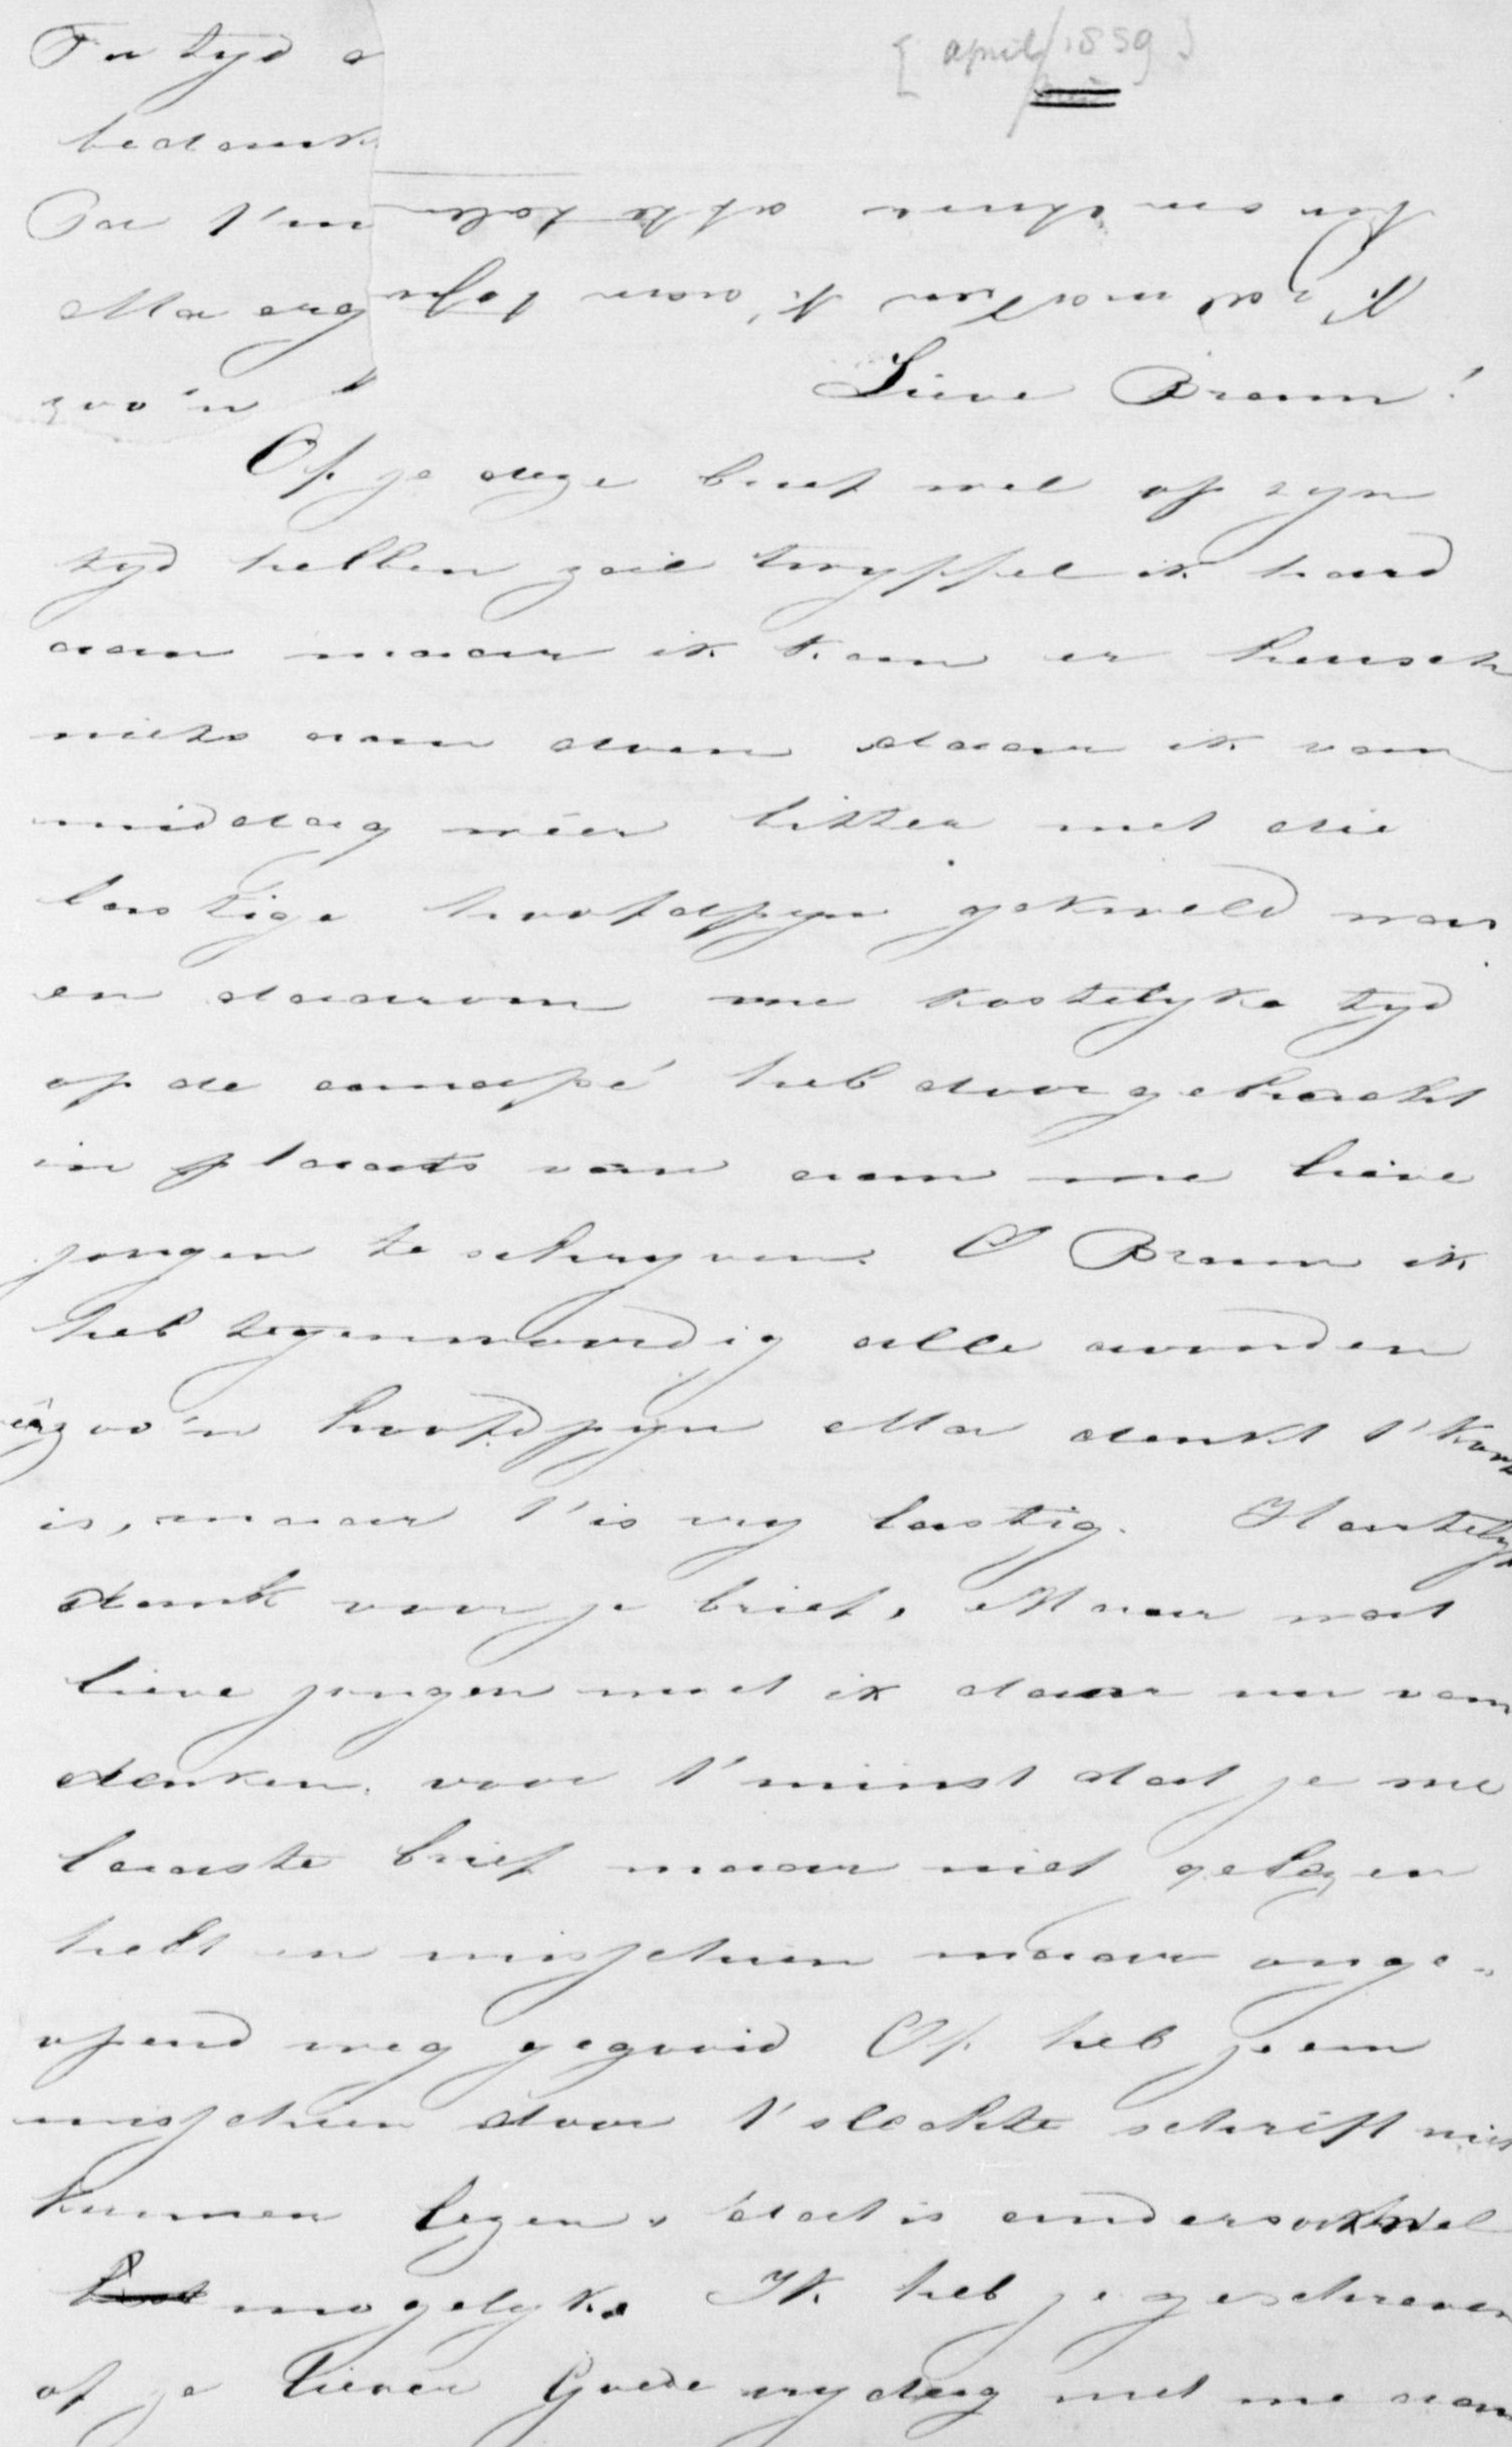 [april/1859]
En tyd
bedank
Pa t'm
Ma erg
zoo'n
komen af te halen
Ik zal maken k' aan
Lieve Bram!
Of je deze brief wel op zyn
tyd hebben zal twyffel ik hard
aan maar ik kan er heusch
niets aan doen daar ik van
middag wéér bitter met die
lastige hoofdpyn gekweld was
en daarom me kostelyke tyd
op de canapé heb doorgebracht
in plaats van aan me lieve
jongen te schryven. O Bram ik
heb tegenwoordig alle avonden
zoo'n hoofdpyn Ma denkt t' kou
is, maar t' is erg lastig. Hartelyk
dank voor je brief. Maar wat
lieve jongen moet ik daar nu van
denken. voor t' minst dat je me
laaste brief maar niet gelezen
hebt en misschien maar onge-
opend weg gegooid Of heb je em
misschien door t' slechte schrift niet
kunnen lezen, dat is anders ook wel
mogelyk. Ik heb je geschreven
of je liever Goede vrydag met me aan